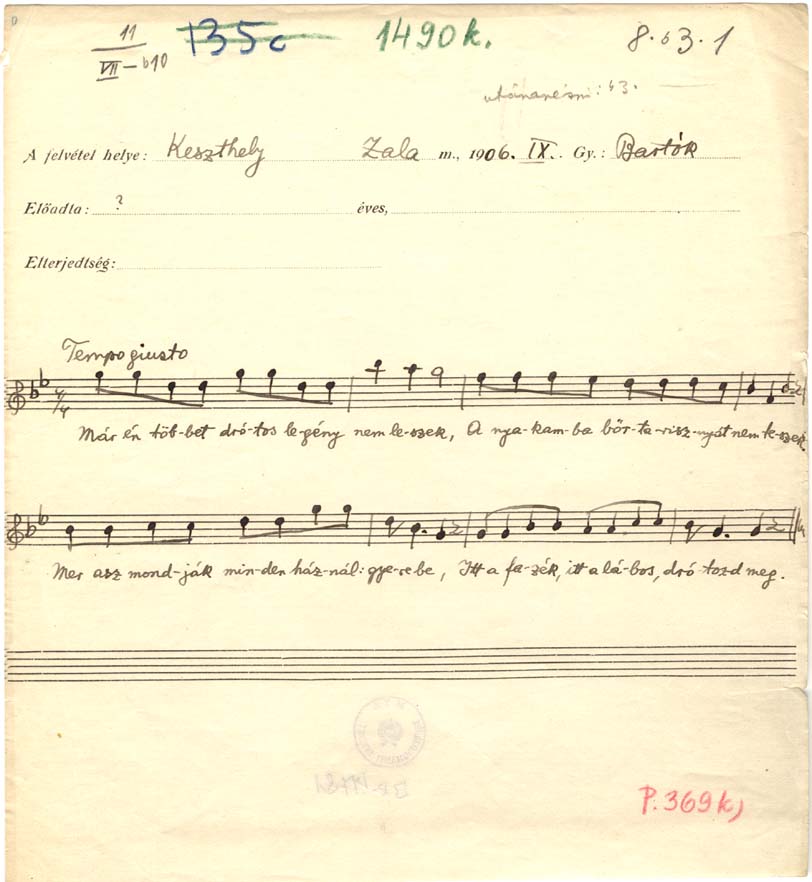 11 135c 1490k. 8.63.1
VII–b10
utánanézni: 63.
A felvétel helye: Keszthely Zala m., 1906. IX. Gy.: Bartók
Előadta: ? éves,
Elterjedtség:
Tempo giusto
4/4
Már én töb-bet dró-tos le-gény nem le-szek, A nya-kam-ba bőr-ta-risz-nyát nem te-szek.
Mer asz mond-ják min-den ház-nál: gye-re be, Itt a fa-zék, itt a lá-bos, dró-tozd meg.
P. 369k)